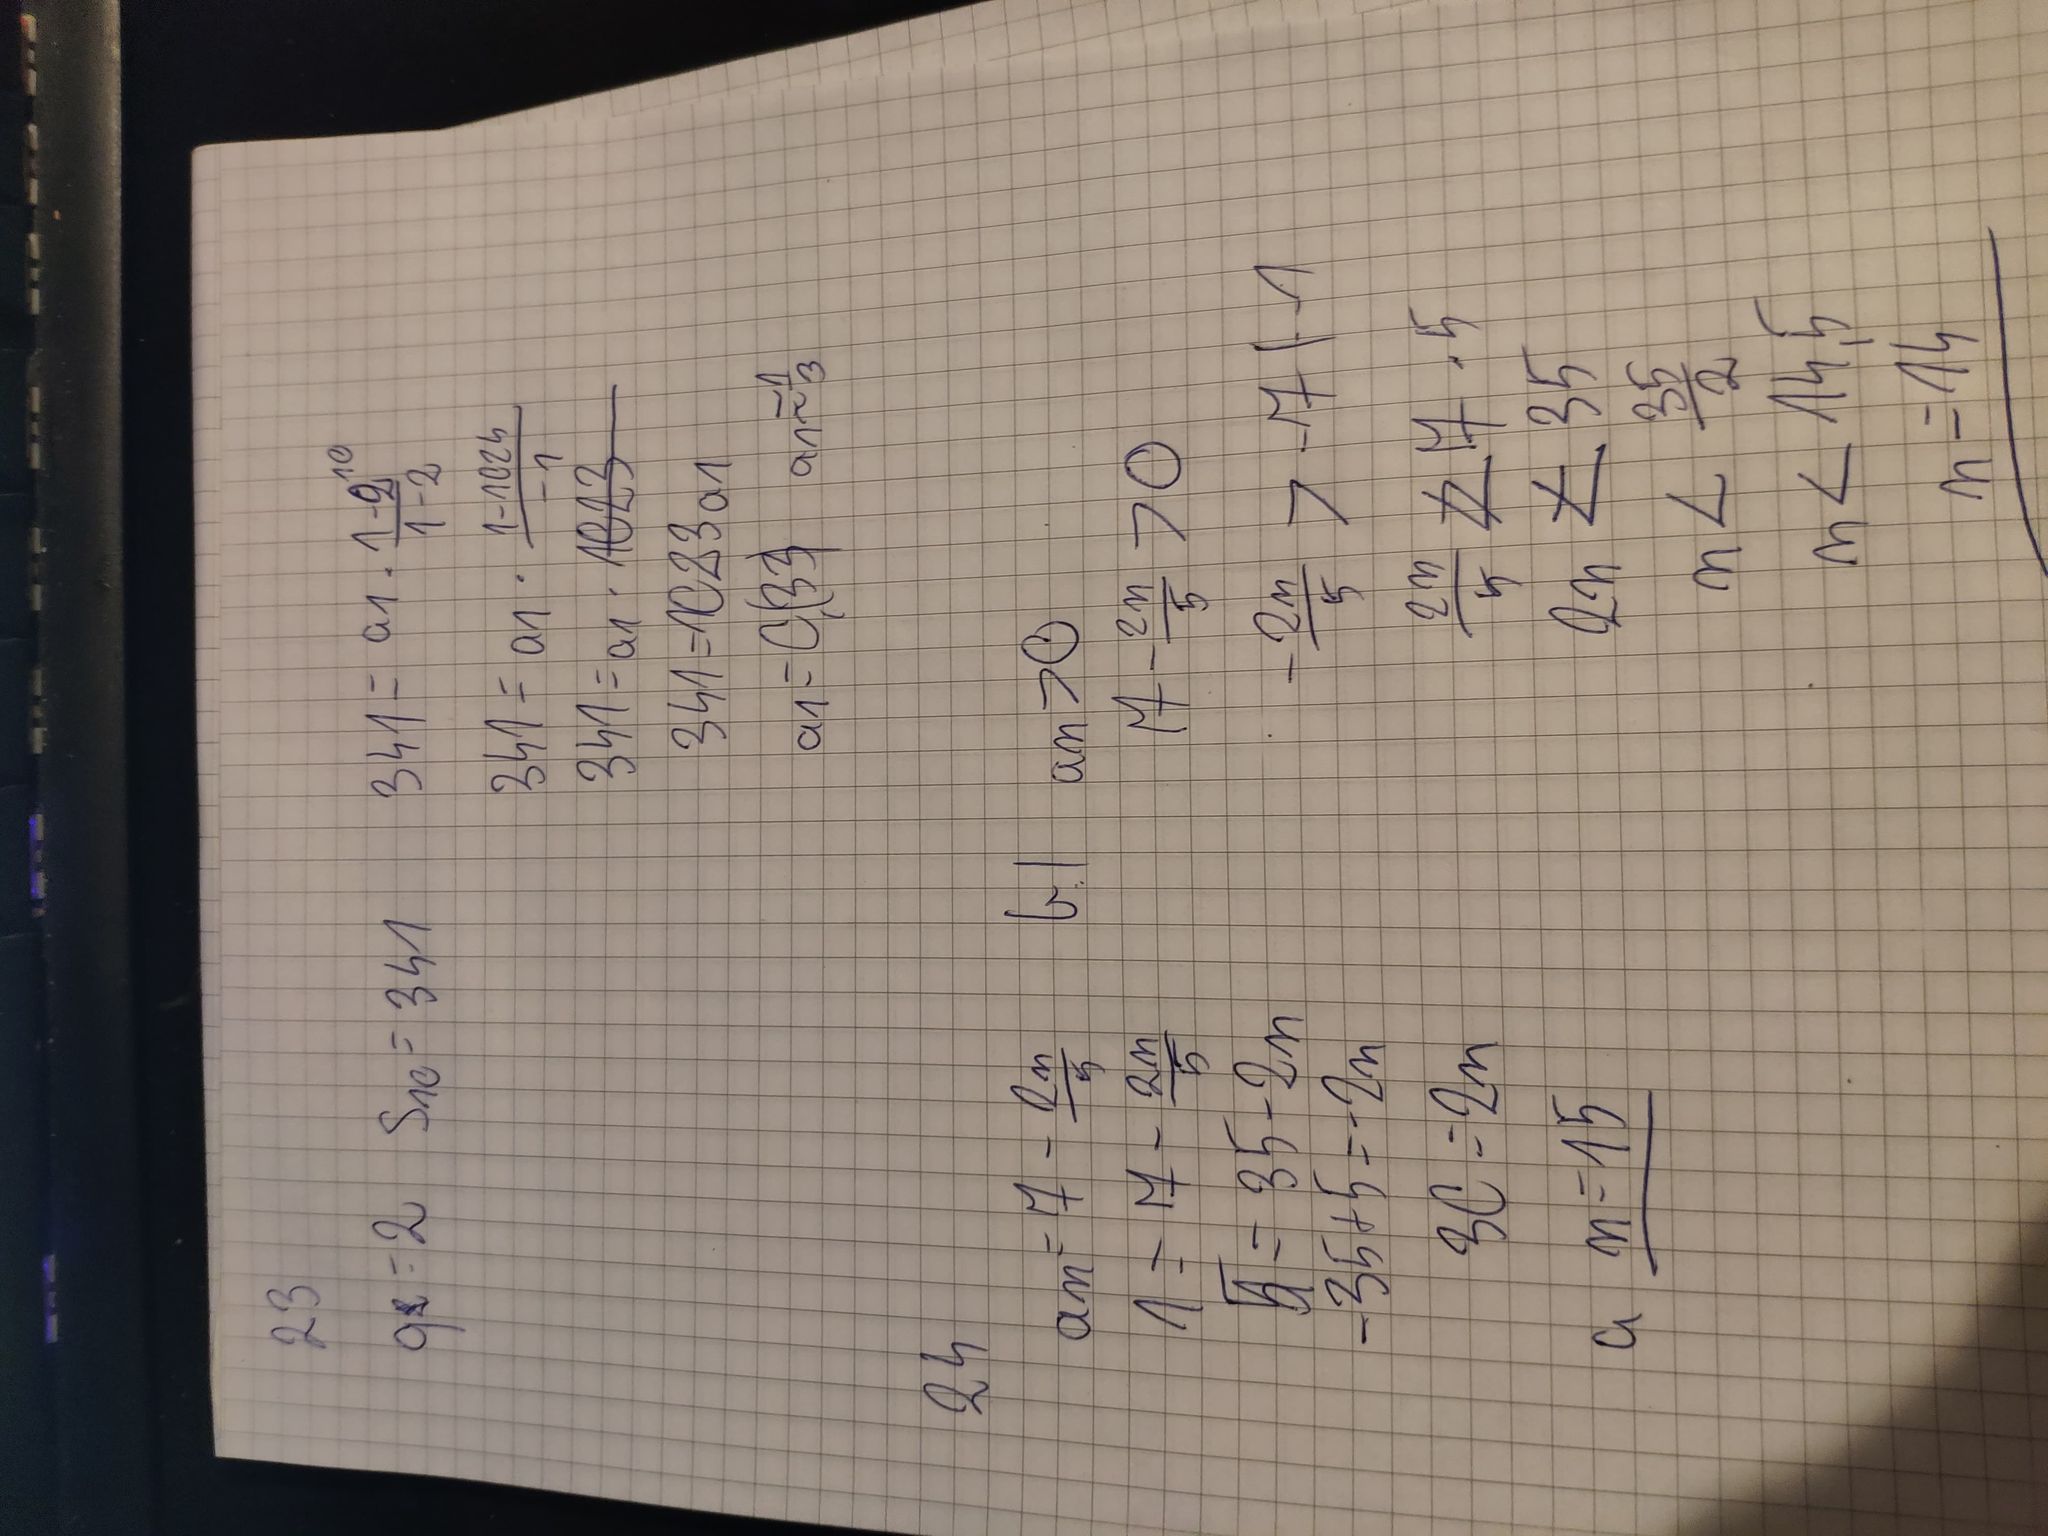 23
q = 2 S10 = 341
341 = a1 · (1-2^10)/(1-2)
341 = a1 · (1-1024)/(-1)
341 = a1 · 1023
341 = 1023 a1
a1 = 0,(33) a1 = 1/3
24
an = 7 - 2n/5
1 = 7 - 2n/5
5 = 35 - 2n
-35 + 5 = -2n
30 = 2n
a n = 15
b.| an > 0
7 - 2n/5 > 0
-2n/5 > -7 | · -1
2n/5 < 7 · 5
2n < 35
n < 35/2
n < 17,5
n = 17